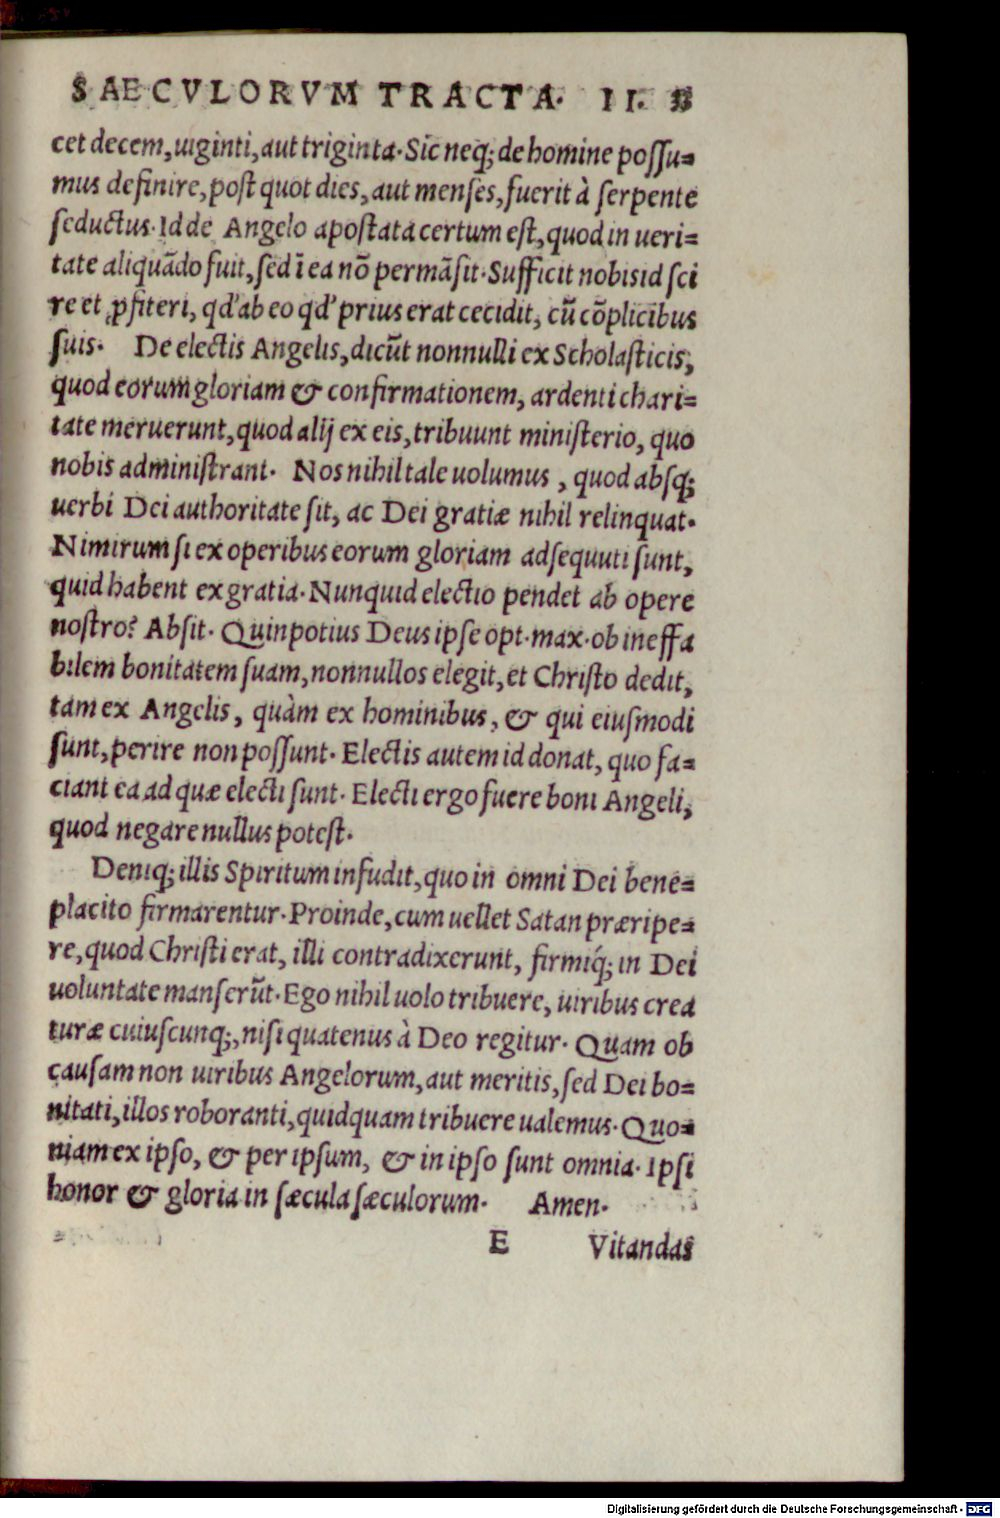 SAECVLORVM TRACTA. II. 33
cet decem, uiginti, aut triginta. Sic neq; de homine possu=
mus definire, post quot dies, aut menses, fuerit à serpente
seductus. Id de Angelo apostata certum est, quod in ueri=
tate aliquãdo fuit, sed ĩ ea nõ permãsit. Sufficit nobis id sci
re et ꝓfiteri, qd' ab eo qd' prius erat cecidit, cũ cõplicibus
suis. De electis Angelis, dicũt nonnulli ex Scholasticis,
quod eorum gloriam & confirmationem, ardenti chari=
tate meruerunt, quod alij ex eis, tribuunt ministerio, quo
nobis administrant. Nos nihil tale uolumus, quod absq;
uerbi Dei authoritate sit, ac Dei gratiæ nihil relinquat.
Nimirum si ex operibus eorum gloriam adsequuti sunt,
quid habent ex gratia. Nunquid electio pendet ab opere
nostro? Absit. Quin potius Deus ipse opt. max. ob ineffa
bilem bonitatem suam, nonnullos elegit, et Christo dedit,
tam ex Angelis, quàm ex hominibus, & qui eiusmodi
sunt, perire non possunt. Electis autem id donat, quo fa=
ciant ea ad quæ electi sunt. Electi ergo fuere boni Angeli,
quod negare nullus potest.
Deniq; illis Spiritum infudit, quo in omni Dei bene=
placito firmarentur. Proinde, cum uellet Satan præripe=
re, quod Christi erat, illi contradixerunt, firmiq́; in Dei
uoluntate manserũt. Ego nihil uolo tribuere, uiribus crea
turæ cuiuscunq;, nisi quatenus à Deo regitur. Quam ob
causam non uiribus Angelorum, aut meritis, sed Dei bo=
nitati, illos roboranti, quidquam tribuere ualemus. Quo=
niam ex ipso, & per ipsum, & in ipso sunt omnia. Ipsi
honor & gloria in sæcula sæculorum. Amen.
E Vitandas
Digitalisierung gefördert durch die Deutsche Forschungsgemeinschaft - DFG